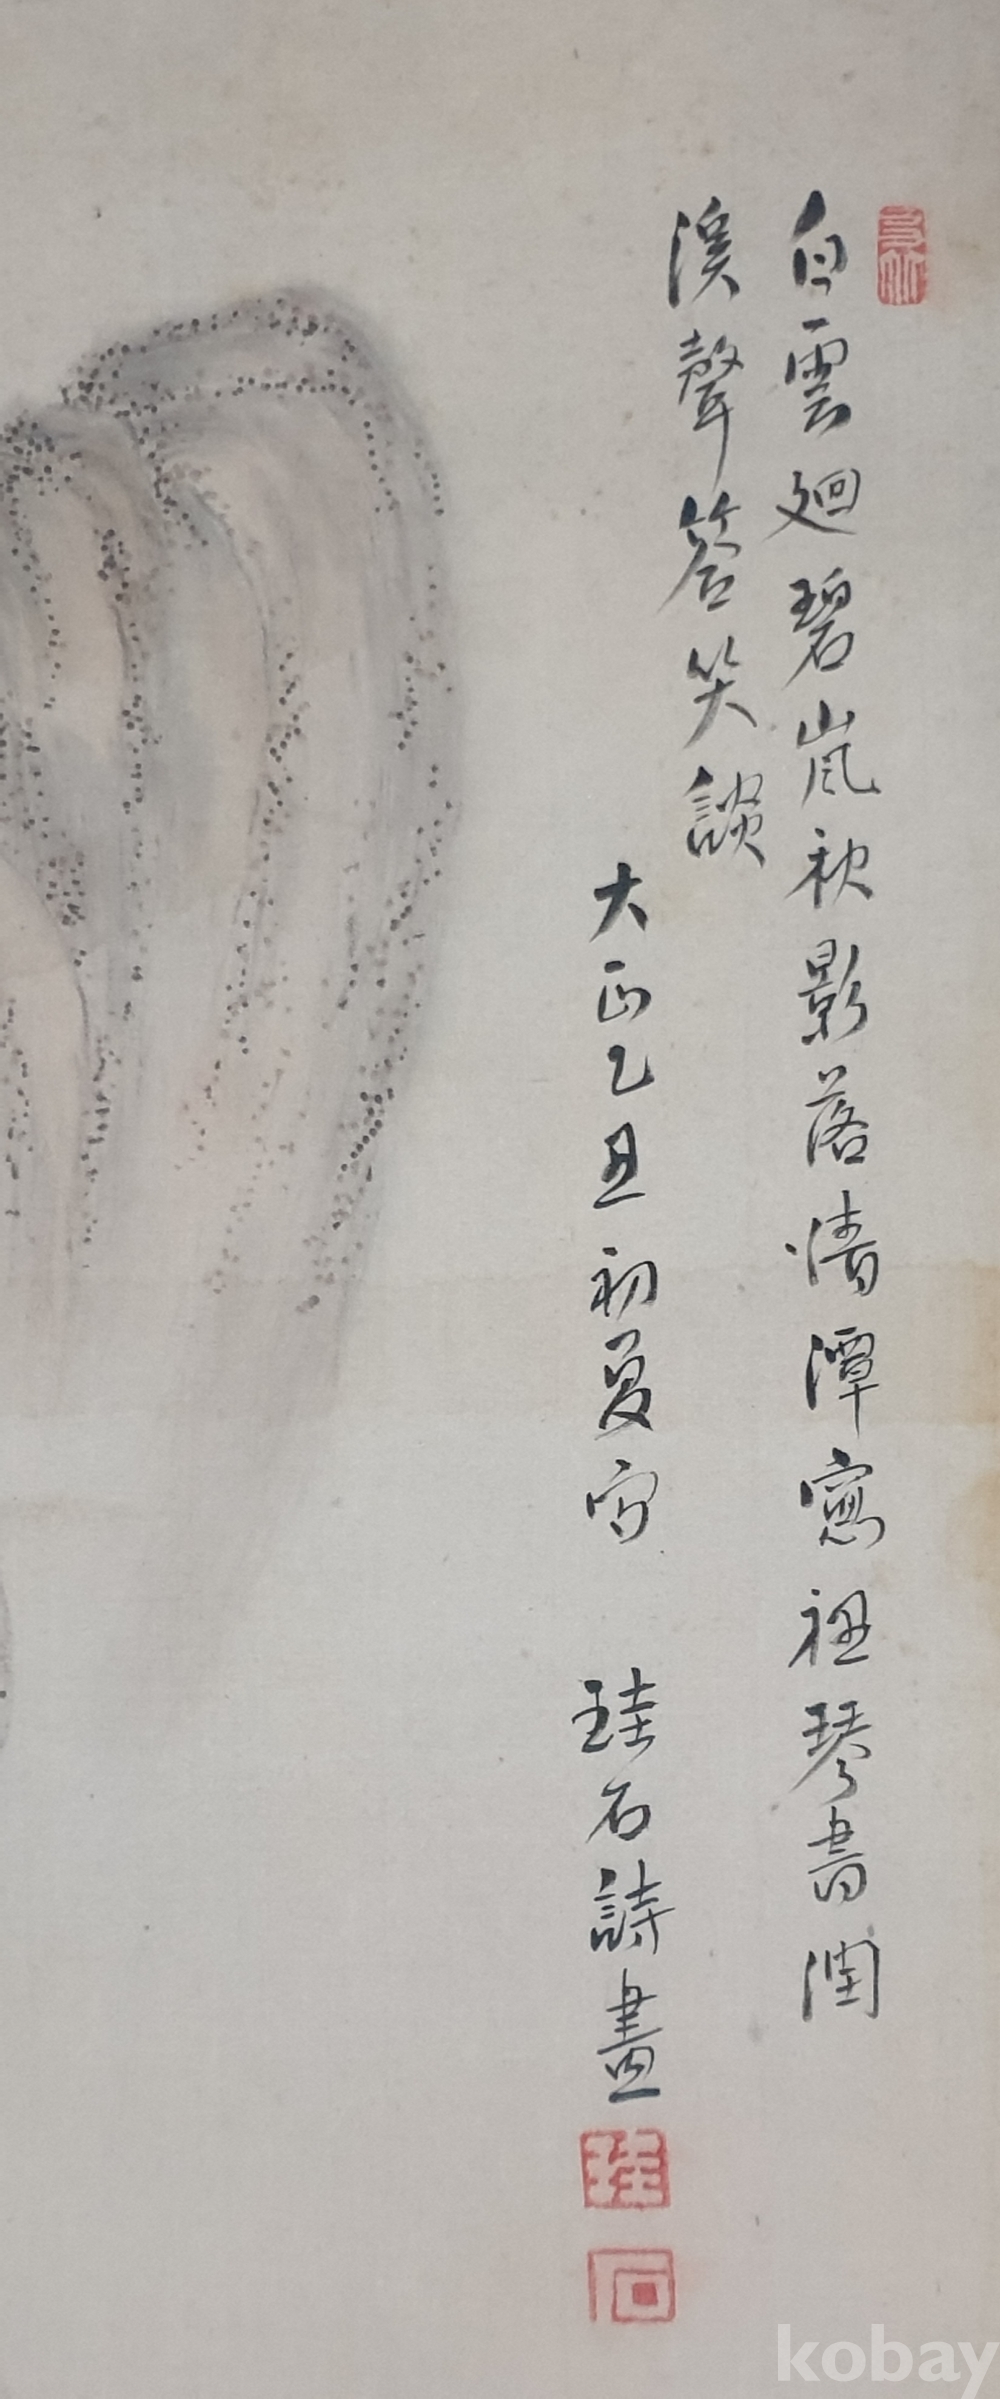 白雲廻碧嵐秋影落清潭窻裡琴書潤
溪聲答笑談
大正乙丑初夏写 珪石詩畫
珪
石
kobay